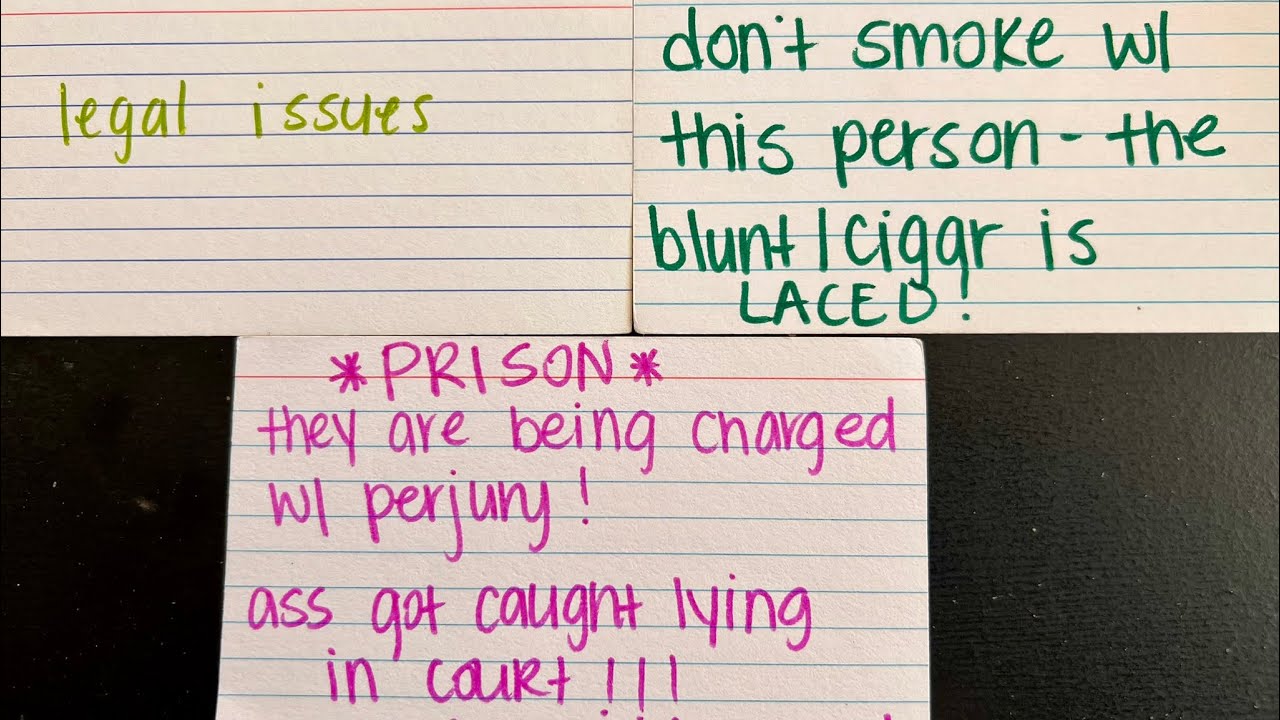 legal issues
don't smoke w/
this person - the
blunt/cigar is
LACED!
*PRISON*
they are being charged
w/ perjury!
ass got caught lying
in court!!!